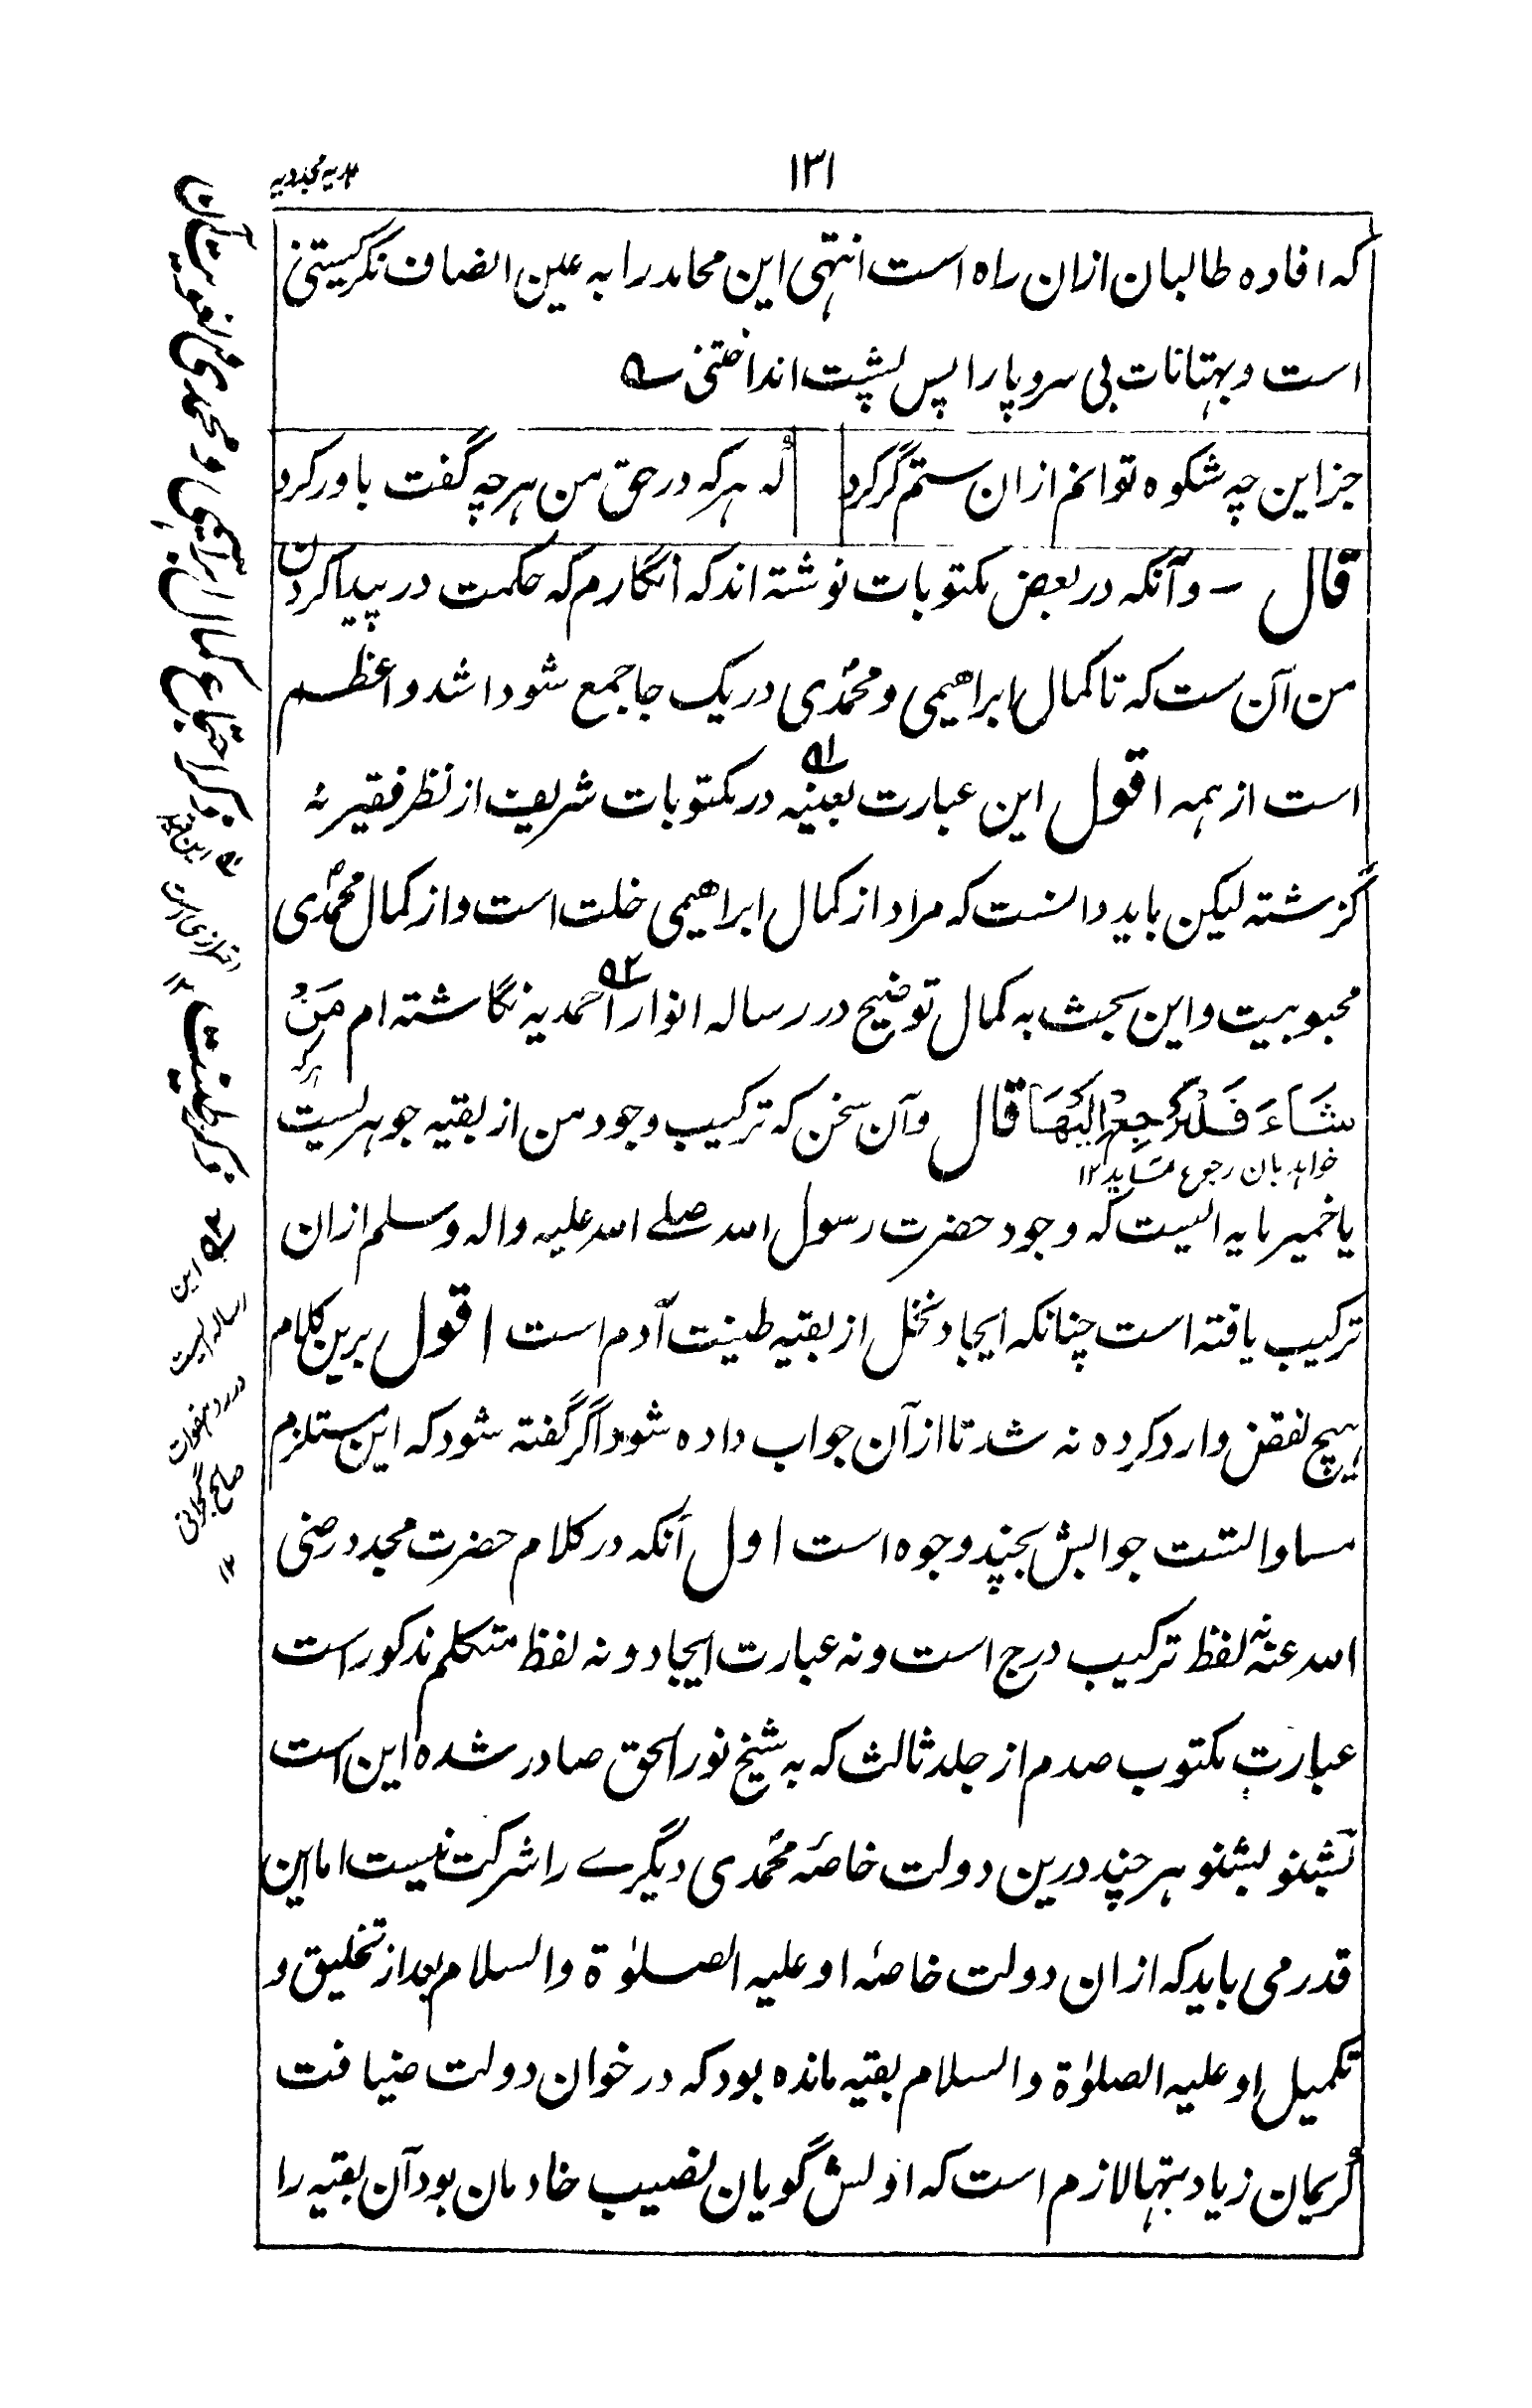 ۱۳۱
هدیه مجددیه
که افاده طالبان ازان راه است انتهی این محامد را به عین انصاف نگریستنی
است و بهتانات بی سروپا را پس پشت انداختنی ؎
جز این چه شکوه توانم ازان ستم گر کرد
که هر که در حق من هر چه گفت باور کرد
قال - و آنکه در بعض مکتوبات نوشته اند که انگارم که حکمت در پیدا کردن
من آن ست که تا کمال ابراهیمی و محمدی در یک جا جمع شود اشد و اعظم
است از همه اقول این عبارت بعینه در مکتوبات شریف از نظر فقیر نه
گزشته لیکن باید دانست که مراد از کمال ابراهیمی خلت است و از کمال محمدی
محبوبیت و این بحث به کمال توضیح در رساله انوار احمدیه نگاشته ام مَنْ
هرکه
شَاءَ فَلْيَرْجِعْ اِلَيْهَا قال و آن سخن که ترکیب وجود من از بقیه جوهریست
خواهد بان رجوع نماید ۱۲
یا خمیر مایه ایست که وجود حضرت رسول الله صلے الله علیه واله وسلم ازان
ترکیب یافته است چنانکه ایجاد نخل از بقیه طینت آدم است اقول برین کلام
هیچ نقض وارد کرده نه شد تا از آن جواب داده شود اگر گفته شود که این مستلزم
مساواتست جوابش بچند وجوه است اول آنکه در کلام حضرت مجدد رضی
الله عنه نه لفظ ترکیب درج است و نه عبارت ایجاد و نه لفظ متکلم مذکور است
عبارت مکتوب صدم از جلد ثالث که به شیخ نور الحق صادر شده این است
بشنو بشنو هر چند درین دولت خاصه محمدی دیگرے را شرکت نیست اما این
قدر می باید که ازان دولت خاصه او علیه الصلوٰة والسلام بعد از تخلیق و
تکمیل او علیه الصلوٰة والسلام بقیه مانده بود که در خوان دولت ضیافت
کریمان زیادتیها لازم است که اولش گویان نصیب خادمان بود آن بقیه را
ذکر اجتماع کمال ابراهیمی و محمدی
ذکر طینت
این
رساله ایست
در رد هفوات
صالح گجراتی
۱۲